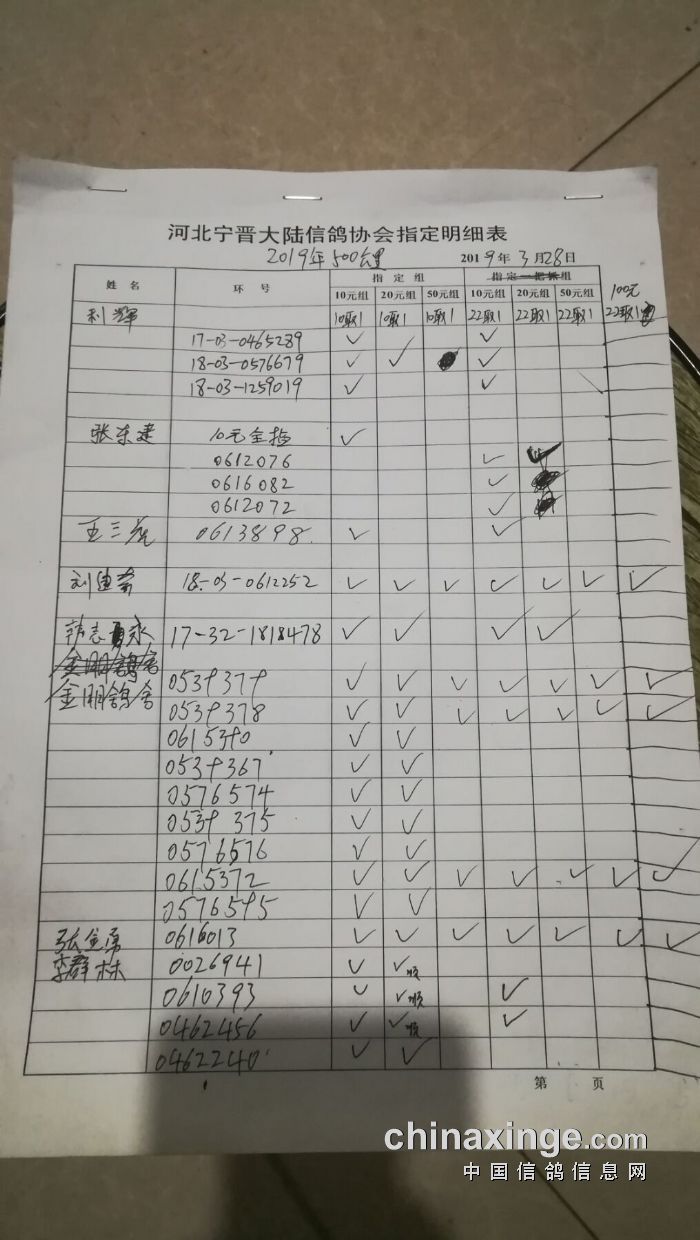 河北宁晋大陆信鸽协会指定明细表
2019年500公里 2019年3月28日
姓名 环号 指定组 指定一把抓组
10元组 20元组 50元组 10元组 20元组 50元组 100元
利辉 10取1 10取1 10取1 22取1 22取1 22取1 22取1
17-03-0465289 ✓ ✓
18-03-0576679 ✓ ✓ ✓
18-03-1259019 ✓ ✓
张东建 10元全指 ✓
0612076 ✓ ✓
0616082 ✓
0612072 ✓
王三 0613898 ✓ ✓
刘 18-03-0612252 ✓ ✓ ✓ ✓ ✓ ✓ ✓
韩志永 17-32-1818478 ✓ ✓ ✓ ✓
金明鸽舍
金明鸽舍 0539379 ✓ ✓ ✓ ✓ ✓ ✓ ✓
0539378 ✓ ✓ ✓ ✓ ✓ ✓ ✓
0615390 ✓ ✓
0539367 ✓ ✓
0576574 ✓ ✓
0539375 ✓ ✓
0576576 ✓ ✓
0615372 ✓ ✓ ✓ ✓ ✓ ✓ ✓
0576595 ✓ ✓
张金勇 0616013 ✓ ✓ ✓ ✓ ✓ ✓ ✓
李群林 0026941 ✓ ✓顺
0610393 ✓ ✓顺 ✓
0462456 ✓ ✓顺 ✓
0462240 ✓ ✓
第 页
chinaxinge.com
中国信鸽信息网